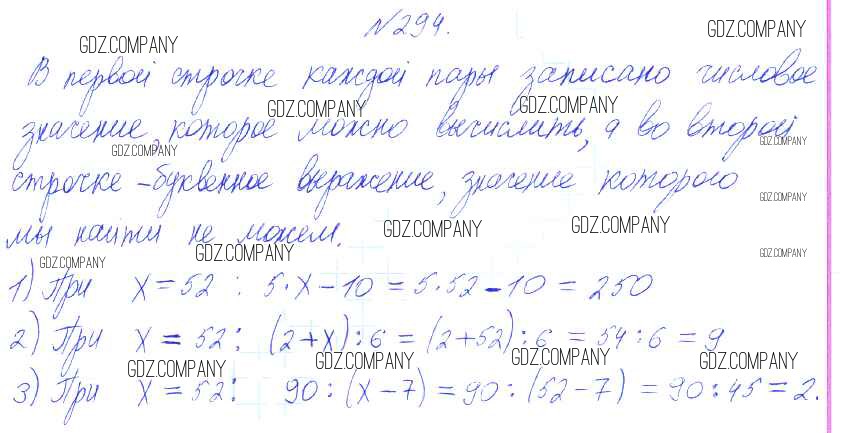 №294.
GDZ.COMPANY GDZ.COMPANY
В первой строчке каждой пары записано числовое
GDZ.COMPANY GDZ.COMPANY
значение, которое можно вычислить, а во второй
GDZ.COMPANY GDZ.COMPANY
строчке - буквенное выражение, значение которого
GDZ.COMPANY
GDZ.COMPANY GDZ.COMPANY
мы найти не можем.
GDZ.COMPANY GDZ.COMPANY GDZ.COMPANY
1) При x = 52 : 5·x - 10 = 5·52 - 10 = 250
2) При x = 52 : (2+x):6 = (2+52):6 = 54:6 = 9
GDZ.COMPANY GDZ.COMPANY GDZ.COMPANY GDZ.COMPANY
3) При x = 52 : 90:(x-7) = 90:(52-7) = 90:45 = 2.